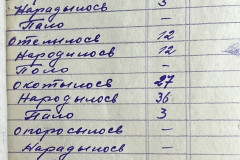 Нарадылось 3
Пало –
Отелилось 12
Народилось 12
Пало –
Окотылось 27
Народылось 36
Пало 3
Опоросылось –
Нарадылось –